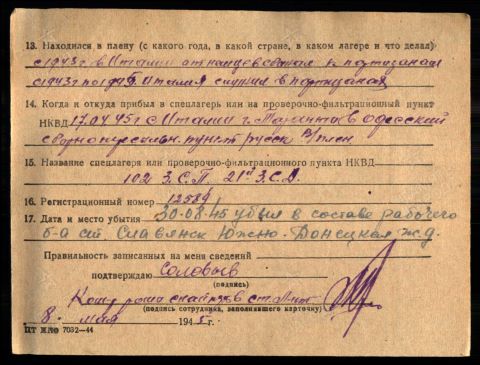 13. Находился в плену (с какого года, в какой стране, в каком лагере и что делал)
с 1943 г в Италии к партизанам
с 1943 г по 1945 Италия служил в партизанах
14. Когда и откуда прибыл в спецлагерь или на проверочно-фильтрационный пункт
НКВД 17.04.45 г с Италии г. в Одесский
пункт русск в/плен
15. Название спецлагеря или проверочно-фильтрационного пункта НКВД
102 З.С.П. 21й З.С.Д.
16. Регистрационный номер 12584
17. Дата и место убытия 30-08-45 убыл в составе рабочего
б-а ст. Славянск Южно-Донецкая ж.д.
Правильность записанных на меня сведений
подтверждаю Соловьев
(подпись)
ст. л-нт
(подпись сотрудника, заполнявшего карточку)
8. мая 1945 г.
ПТ НКО 7032—44